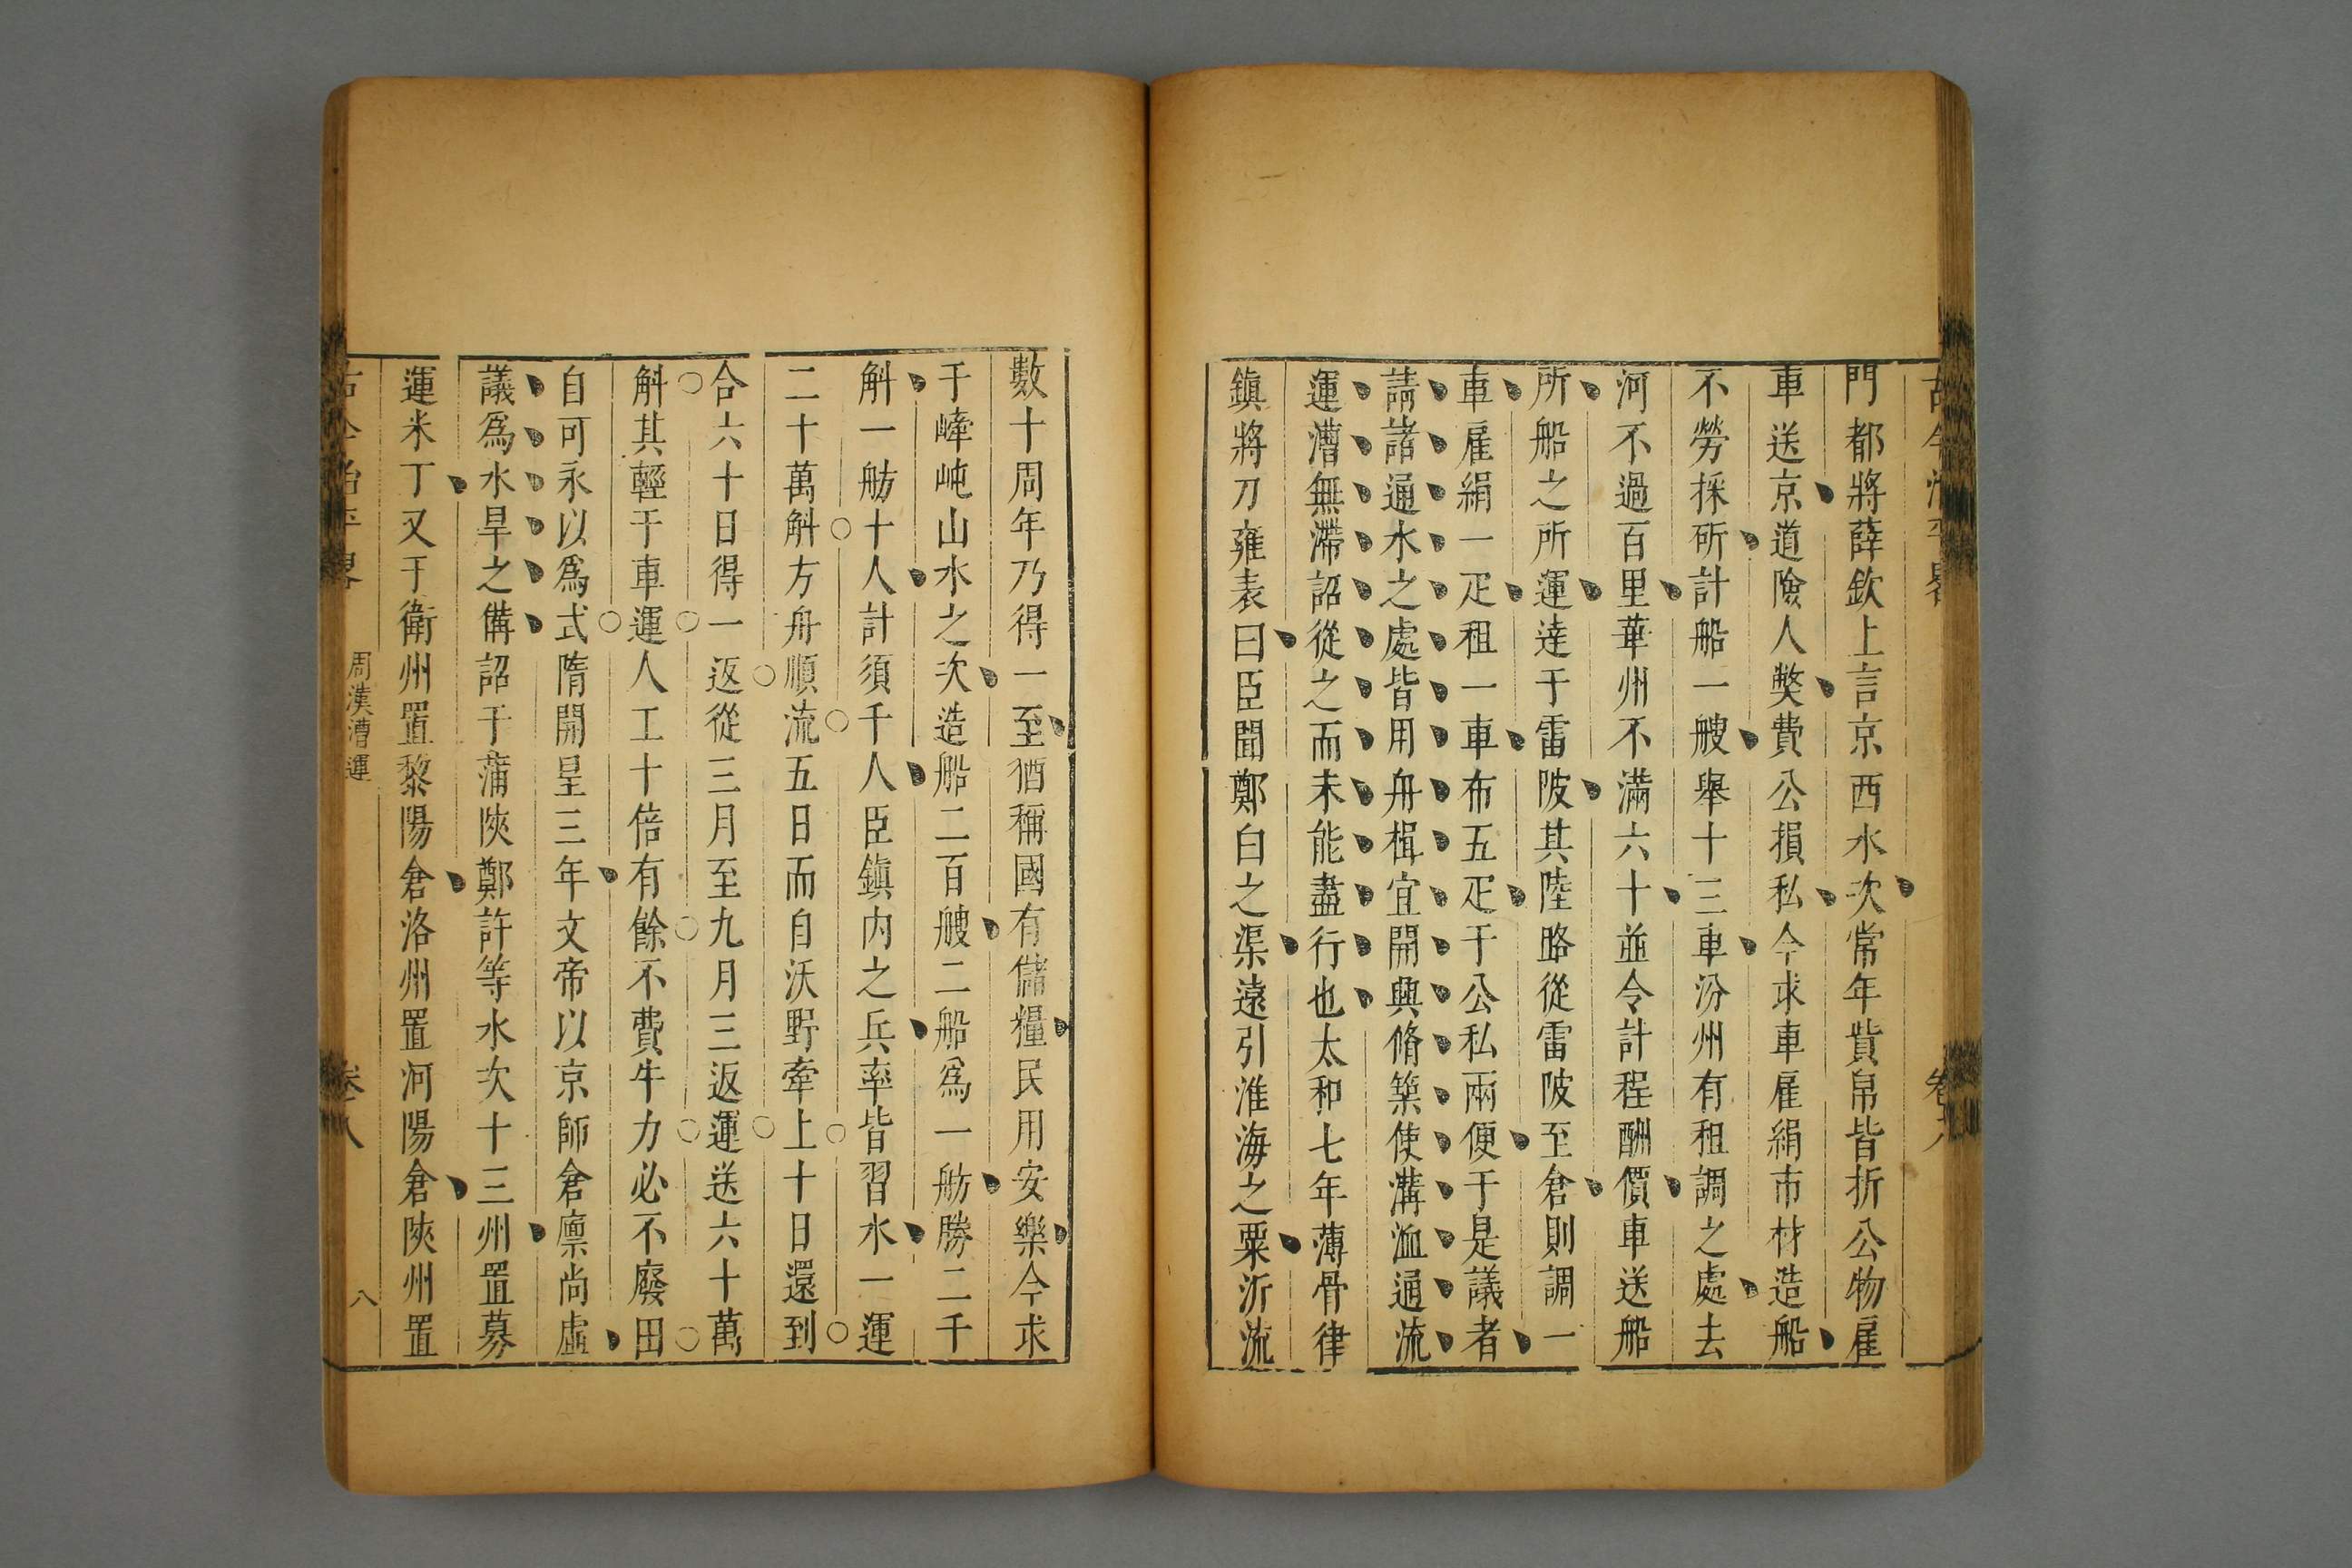 門都將薛欽上言京西水次常年貲帛皆折公物雇
車送京道險人弊費公損私今求車雇絹市材造船
不勞採斫計船一艘舉十三車汾州有租調之處去
河不過百里華州不滿六十並令計程酬價車送船
所船之所運達于雷陂其陸路從雷陂至倉則調一
車雇絹一疋租一車布五疋于公私兩便于是議者
請諸通水之處皆用舟楫宜開興脩築使溝洫通流
運漕無滯詔從之而未能盡行也太和七年薄骨律
鎮將刀雍表曰臣聞鄭白之渠遠引淮海之粟沂流
數十周年乃得一至猶稱國有儲糧民用安樂今求
于崆峒山水之次造船二百艘二船爲一舫勝二千
斛一舫十人計須千人臣鎮内之兵率皆習水一運
二十萬斛方舟順流五日而自沃野牽上十日還到
合六十日得一返從三月至九月三返運送六十萬
斛其輕于車運人工十倍有餘不費牛力必不廢田
自可永以爲式隋開皇三年文帝以京師倉廪尚虛
議爲水旱之備詔于蒲陝鄭許等水次十三州置募
運米丁又于衛州置黎陽倉洛州置河陽倉陝州置
周漢漕運
卷八
八